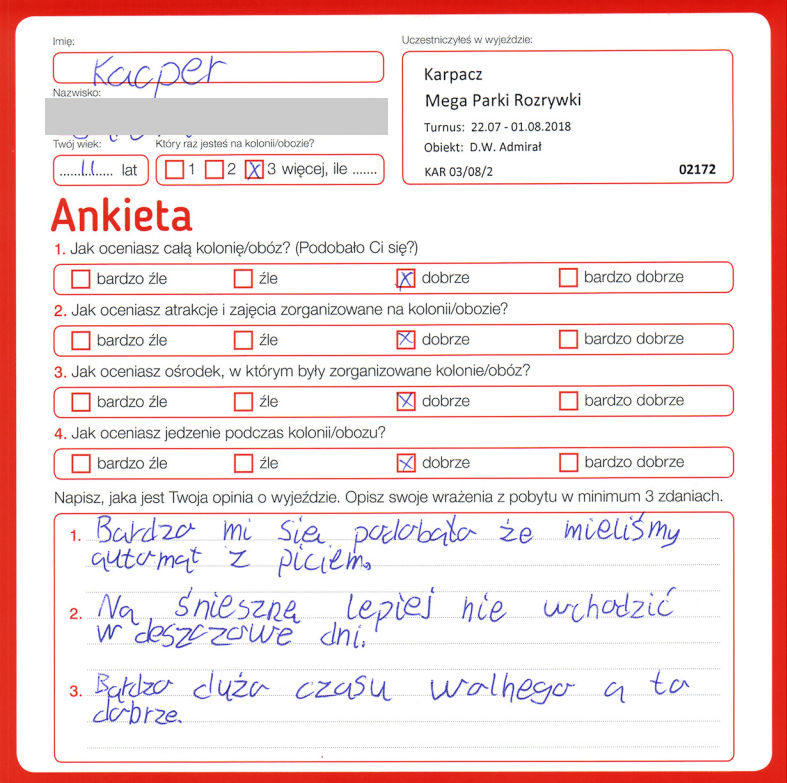 Imię:
Kacper
Nazwisko:
Twój wiek:
11 lat
Który raz jesteś na kolonii/obozie?
1 2 3 więcej, ile .......
Uczestniczyłeś w wyjeździe:
Karpacz
Mega Parki Rozrywki
Turnus: 22.07 - 01.08.2018
Obiekt: D.W. Admirał
KAR 03/08/2 02172
Ankieta
1. Jak oceniasz całą kolonię/obóz? (Podobało Ci się?)
bardzo źle źle dobrze bardzo dobrze
2. Jak oceniasz atrakcje i zajęcia zorganizowane na kolonii/obozie?
bardzo źle źle dobrze bardzo dobrze
3. Jak oceniasz ośrodek, w którym były zorganizowane kolonie/obóz?
bardzo źle źle dobrze bardzo dobrze
4. Jak oceniasz jedzenie podczas kolonii/obozu?
bardzo źle źle dobrze bardzo dobrze
Napisz, jaka jest Twoja opinia o wyjeździe. Opisz swoje wrażenia z pobytu w minimum 3 zdaniach.
1. Bardzo mi się podobało że mieliśmy
automat z piciem.
2. Na śnieszne lepiej nie wchodzić
w deszczowe dni.
3. Bardzo dużo czasu wolnego a to
dobrze.